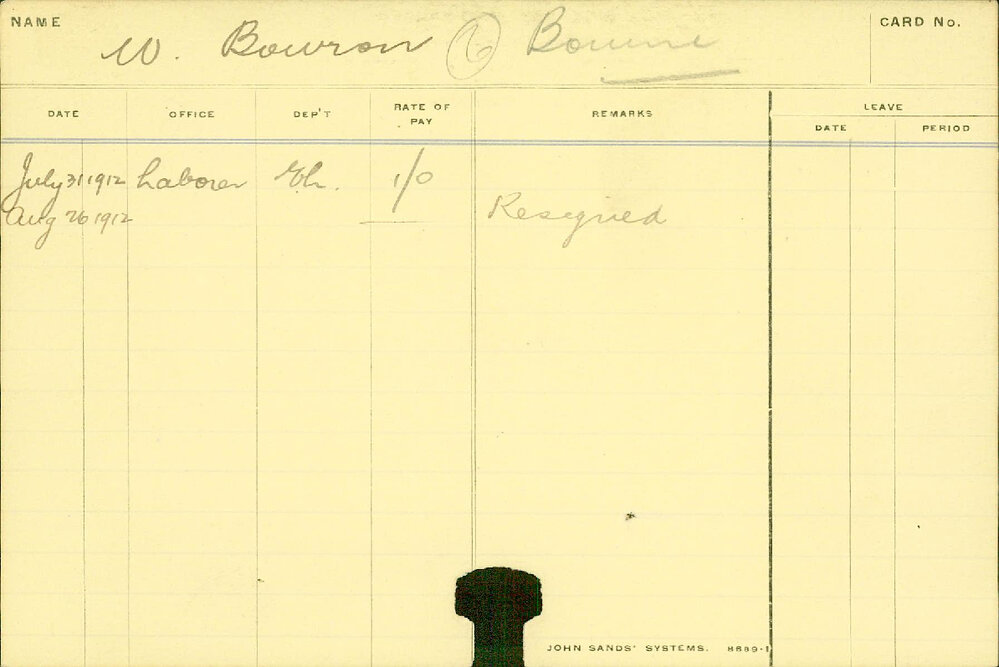 NAME
W. Bowron (6) Bourne
CARD No.
DATE OFFICE DEP'T RATE OF PAY REMARKS LEAVE
DATE PERIOD
July 31 1912 Laborer Eh. 1/0
Aug 26 1912 Resigned
JOHN SANDS' SYSTEMS. 8689-1